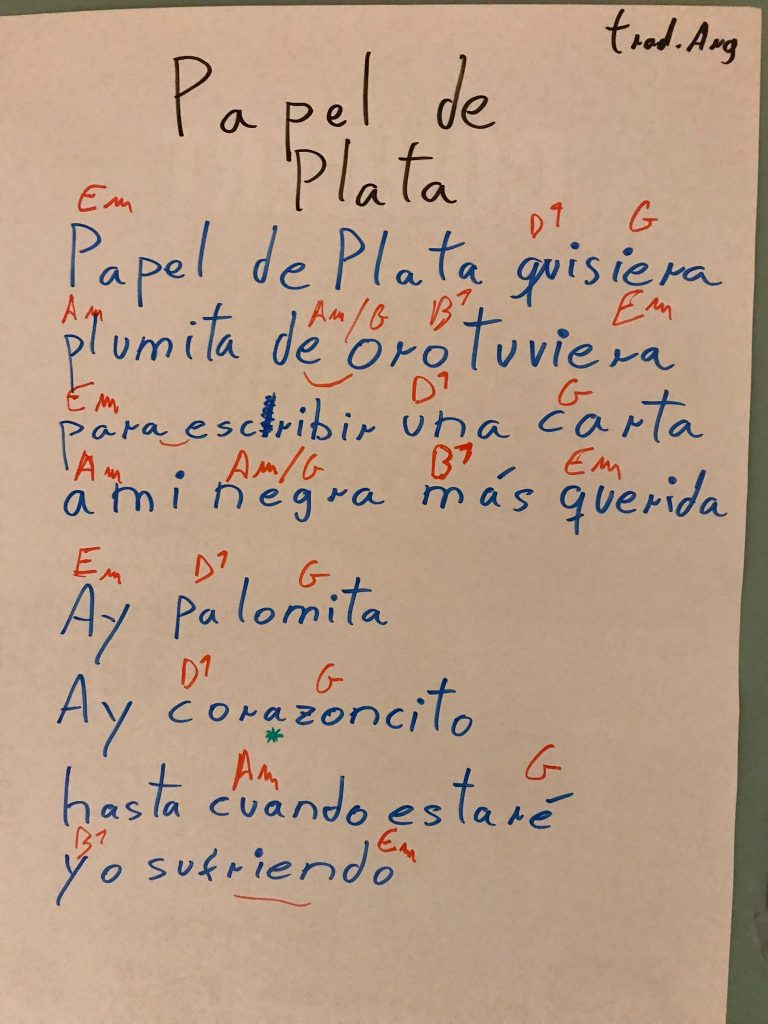 trad. Arg
Papel de
Plata
Em D7 G
Papel de Plata quisiera
Am Am/G B7 Em
plumita de oro tuviera
Em D7 G
para escribir una carta
Am Am/G B7 Em
a mi negra más querida
Em D7 G
Ay palomita
D7 G
Ay corazoncito
*
Am G
hasta cuando estaré
B7 Em
yo sufriendo